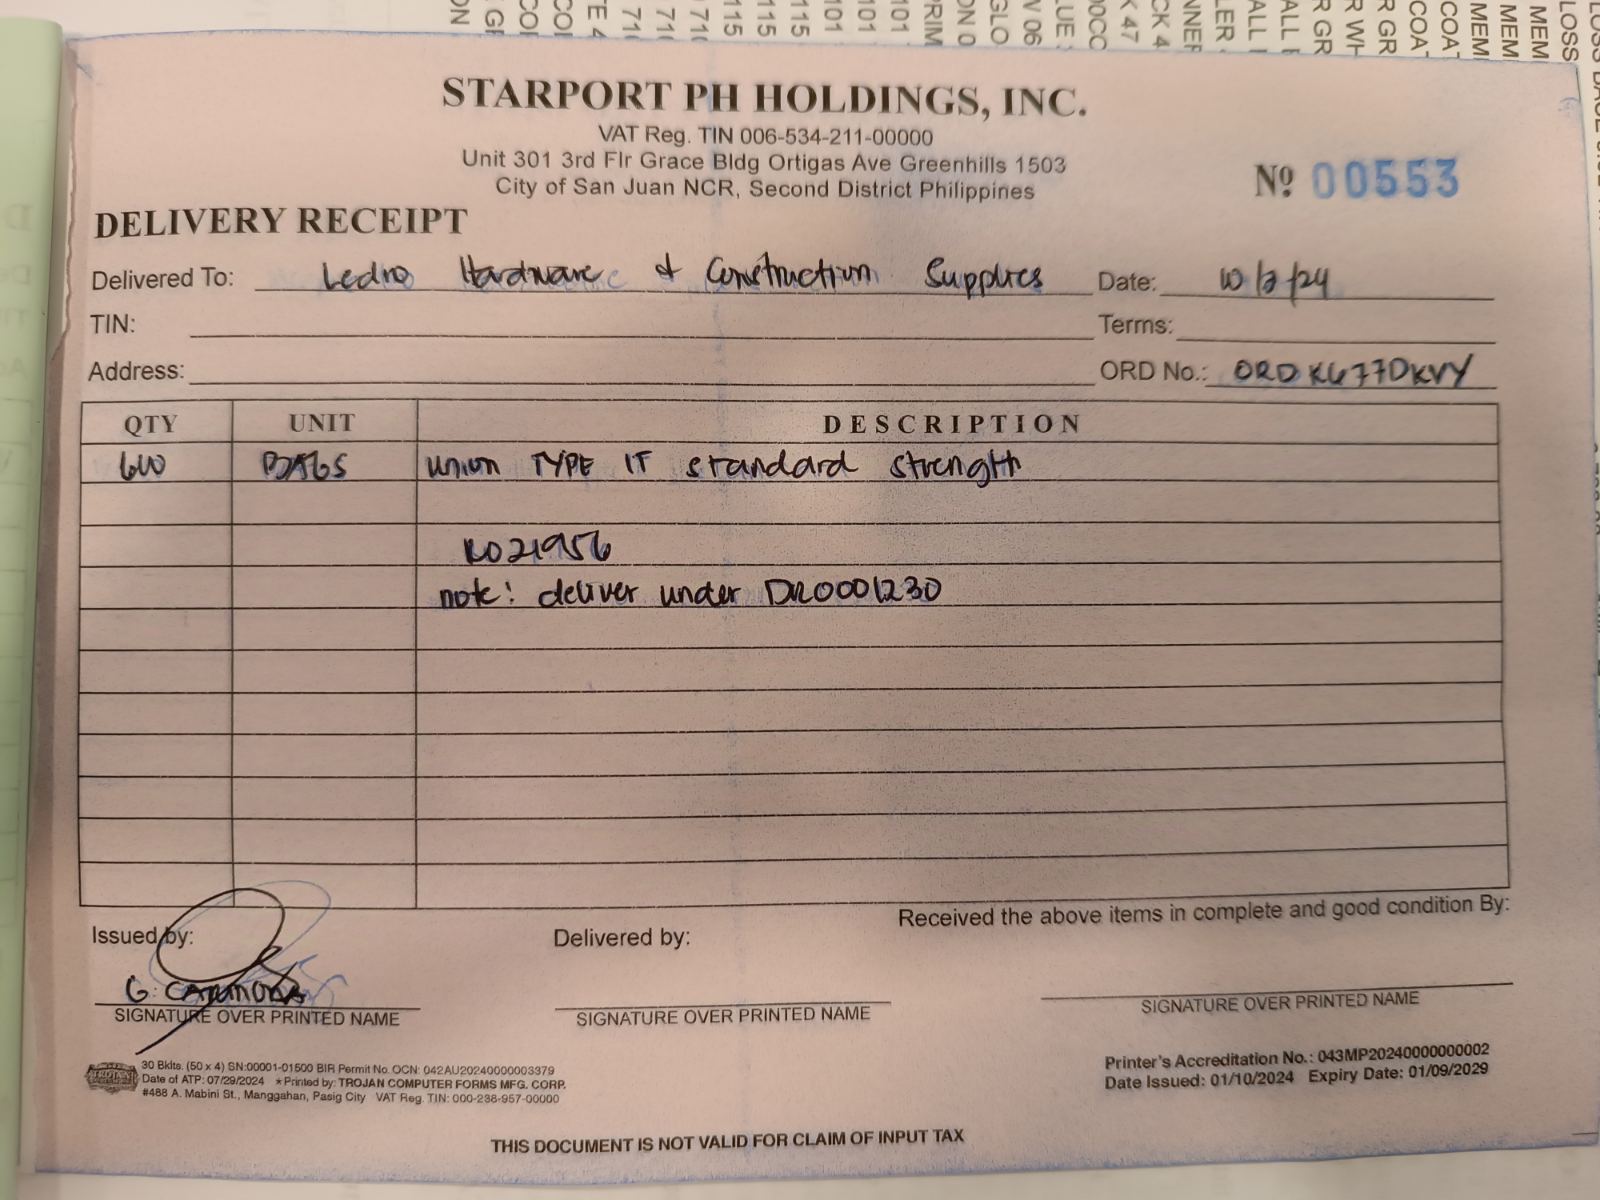 STARPORT PH HOLDINGS, INC.
VAT Reg. TIN 006-534-211-00000
Unit 301 3rd Flr Grace Bldg Ortigas Ave Greenhills 1503
City of San Juan NCR, Second District Philippines
Nº 00553
DELIVERY RECEIPT
Delivered To: Ledro Hardware & Construction Supplies Date: 10/2/24
TIN: Terms:
Address: ORD No.: ORDK677DKVY
QTY UNIT DESCRIPTION
600 BAGS union TYPE 1T standard strength
note: deliver under DR0001230
Received the above items in complete and good condition By:
Issued by: Delivered by:
G.
SIGNATURE OVER PRINTED NAME SIGNATURE OVER PRINTED NAME SIGNATURE OVER PRINTED NAME
30 Bklts. (50 x 4) SN:00001-01500 BIR Permit No. OCN: 042AU20240000003379
Date of ATP: 07/29/2024 ★Printed by: TROJAN COMPUTER FORMS MFG. CORP.
#488 A. Mabini St., Manggahan, Pasig City VAT Reg. TIN: 000-238-957-00000
Printer's Accreditation No.: 043MP20240000000002
Date Issued: 01/10/2024 Expiry Date: 01/09/2029
THIS DOCUMENT IS NOT VALID FOR CLAIM OF INPUT TAX